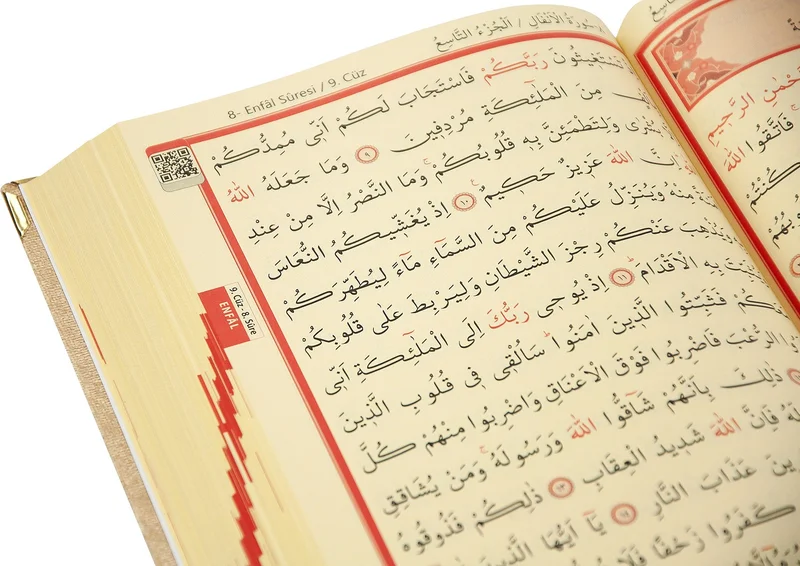 8- Enfâl Sûresi / 9. Cüz
سُورَةُ الْاَنْفَالِ / اَلْجُزْءُ التَّاسِعُ
تَسْتَغ۪يثُونَ رَبَّكُمْ فَاسْتَجَابَ لَكُمْ اَنّ۪ي مُمِدُّكُمْ
مِنَ الْمَلٰٓئِكَةِ مُرْدِف۪ينَ ﴿٩﴾ وَمَا جَعَلَهُ اللّٰهُ
بُشْرٰى وَلِتَطْمَئِنَّ بِه۪ قُلُوبُكُمْۚ وَمَا النَّصْرُ اِلَّا مِنْ عِنْدِ
اللّٰهَ عَز۪يزٌ حَك۪يمٌ ﴿١٠﴾ اِذْ يُغَشّ۪يكُمُ النُّعَاسَ
مِنْهُ وَيُنَزِّلُ عَلَيْكُمْ مِنَ السَّمَٓاءِ مَٓاءً لِيُطَهِّرَكُمْ
وَيُذْهِبَ عَنْكُمْ رِجْزَ الشَّيْطَانِ وَلِيَرْبِطَ عَلٰى قُلُوبِكُمْ
بِهِ الْاَقْدَامَۜ ﴿١١﴾ اِذْ يُوح۪ي رَبُّكَ اِلَى الْمَلٰٓئِكَةِ اَنّ۪ي
فَثَبِّتُوا الَّذ۪ينَ اٰمَنُواۜ سَاُلْق۪ي ف۪ي قُلُوبِ الَّذ۪ينَ
الرُّعْبَ فَاضْرِبُوا فَوْقَ الْاَعْنَاقِ وَاضْرِبُوا مِنْهُمْ كُلَّ
ذٰلِكَ بِاَنَّهُمْ شَٓاقُّوا اللّٰهَ وَرَسُولَهُۚ وَمَنْ يُشَاقِقِ
فَاِنَّ اللّٰهَ شَد۪يدُ الْعِقَابِ ﴿١٣﴾ ذٰلِكُمْ فَذُوقُوهُ
عَذَابَ النَّارِ ﴿١٤﴾ يَٓا اَيُّهَا الَّذ۪ينَ
كَفَرُوا زَحْفًا فَلَا
9. Cüz- 8. Sûre
ENFÂL
الرَّح۪يمِ
فَاتَّقُوا اللّٰهَ
كُنْتُمْ